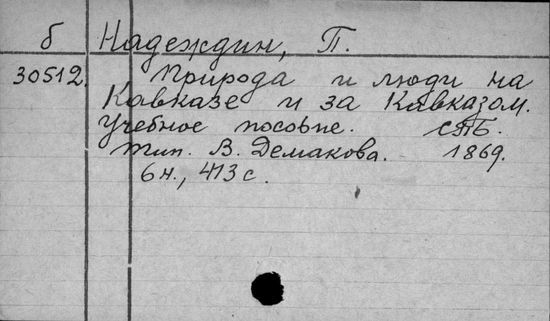 б Надеждин, П.
30512. Природа и люди на
Кавказе и за Кавказом.
Учебное пособие. СПБ.
тип. В. Демакова. 1869.
6н., 413 с.